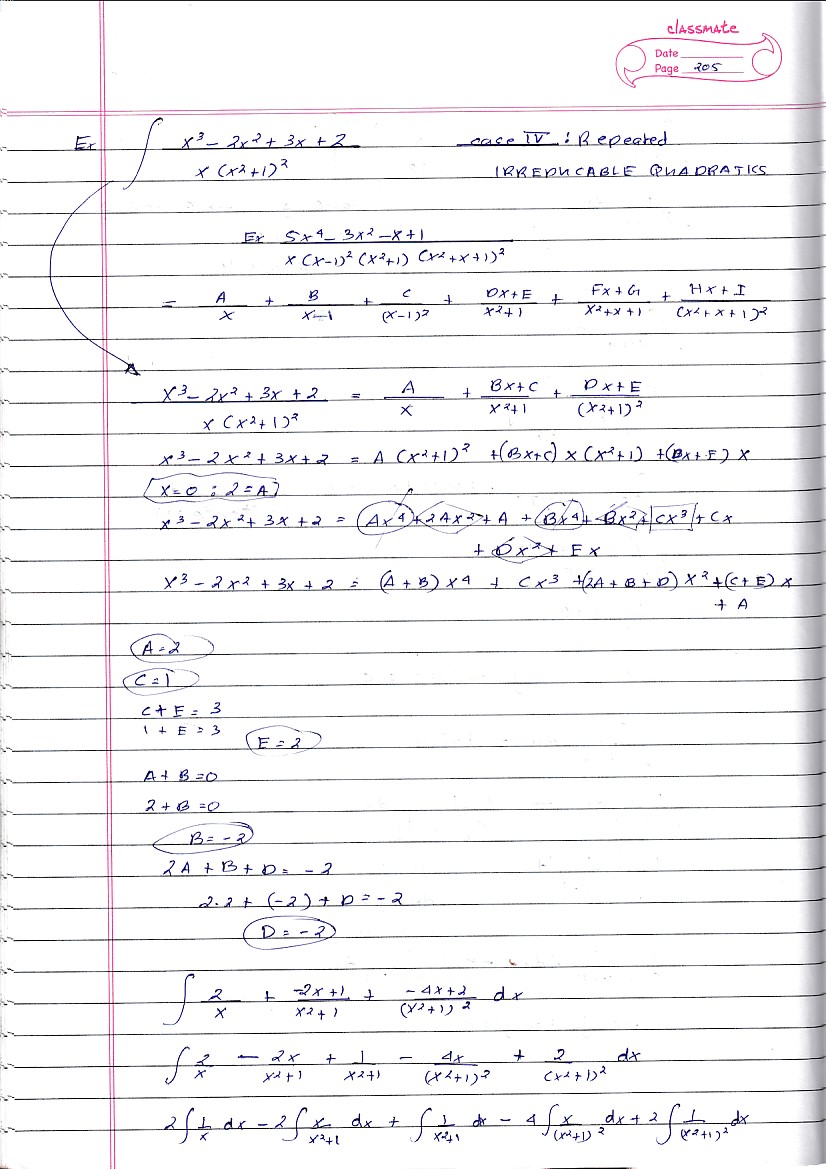 classmate
Date
Page 205
Ex ∫ x³ - 2x² + 3x + 2 / x (x²+1)² case IV : Repeated
IRREDUCABLE QUADRATICS
Ex 5x⁴ - 3x² - x + 1 / x (x-1)² (x²+1) (x²+x+1)²
= A/x + B/(x-1) + C/(x-1)² + (Dx+E)/(x²+1) + (Fx+G)/(x²+x+1) + (Hx+I)/(x²+x+1)²
x³ - 2x² + 3x + 2 / x (x²+1)² = A/x + (Bx+C)/(x²+1) + (Dx+E)/(x²+1)²
x³ - 2x² + 3x + 2 = A (x²+1)² + (Bx+C) x (x²+1) + (Dx+E) x
x=0 : 2=A
x³ - 2x² + 3x + 2 = Ax⁴ + 2Ax² + A + Bx⁴ + Bx² + Cx³ + Cx
+ Dx² + Ex
x³ - 2x² + 3x + 2 = (A+B) x⁴ + Cx³ + (2A+B+D) x² + (C+E) x
+ A
A=2
C=1
C+E = 3
1+E = 3
E=2
A+B=0
2+B=0
B=-2
2A+B+D=-2
2·2+(-2)+D=-2
D=-2
∫ 2/x + (-2x+1)/(x²+1) + (-4x+2)/(x²+1)² dx
∫ 2/x - 2x/(x²+1) + 1/(x²+1) - 4x/(x²+1)² + 2/(x²+1)² dx
2∫ 1/x dx - 2∫ x/(x²+1) dx + ∫ 1/(x²+1) dx - 4∫ x/(x²+1)² dx + 2∫ 1/(x²+1)² dx